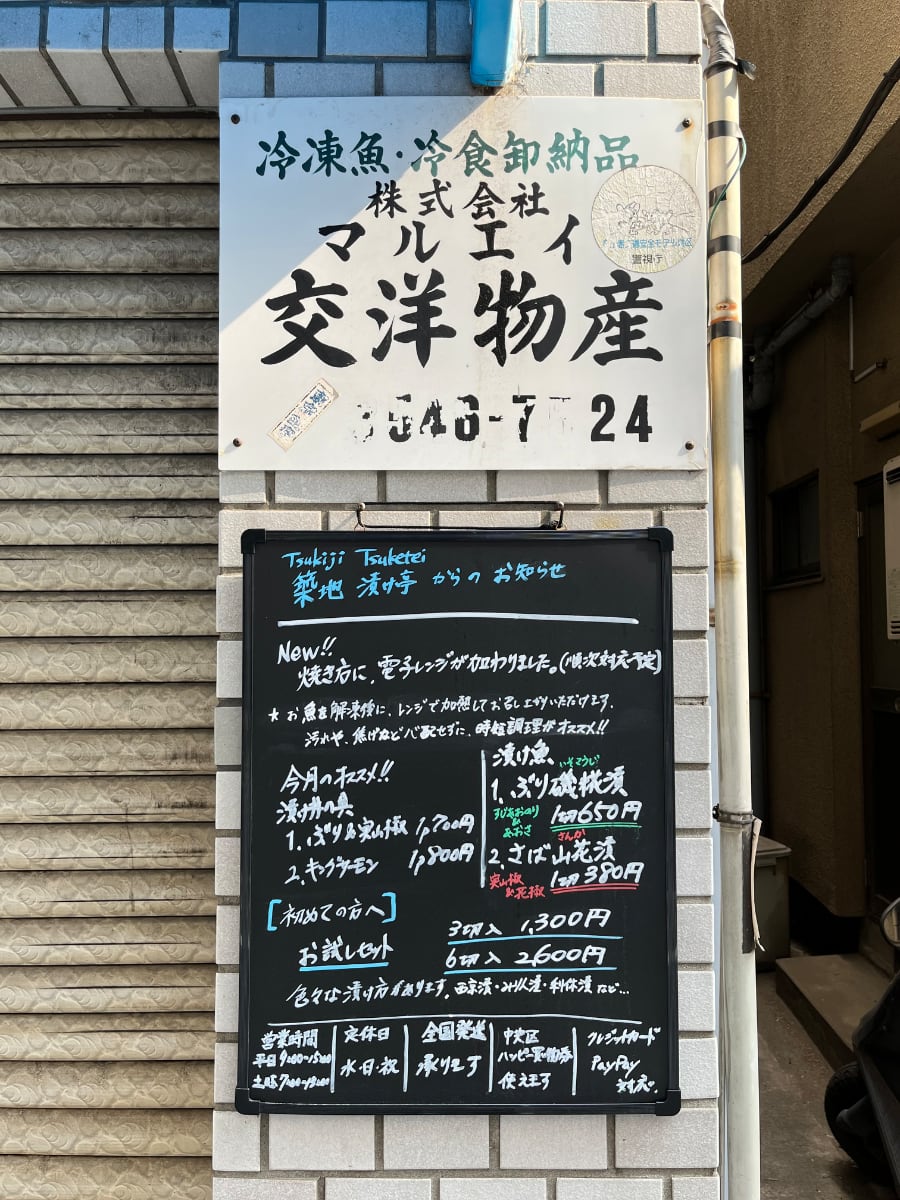 冷凍魚・冷食卸納品
株式会社
マルエイ
交洋物産
警視庁
546-7 24
Tsukiji Tsuketei
築地 漬け亭 からの お知らせ
New!!
焼き方に、電子レンジが加わりました。(順次対応予定)
★お魚を解凍後に、レンジで加熱してお召し上がりいただけます。
汚れや、焦げなど心配せずに、時短調理がオススメ!!
今月のオススメ!!
漬け丼の具
1、ぶり&実山椒 1,700円
2、キングサーモン 1,800円
漬け魚
いそこうじ
1、ぶり磯糀漬
すじあおのり
&
あおさ
1切650円
さんか
2、さば山花漬
実山椒
&花椒
1切380円
[初めての方へ]
お試しセット
3切入 1,300円
6切入 2,600円
色々な漬け方があります。西京漬・みりん漬・利休漬など…
営業時間
平日9:00~15:00
定休日
水・日・祝
全国発送
承ります
中央区
ハッピー買物券
使えます
クレジットカード
PayPay
対応。